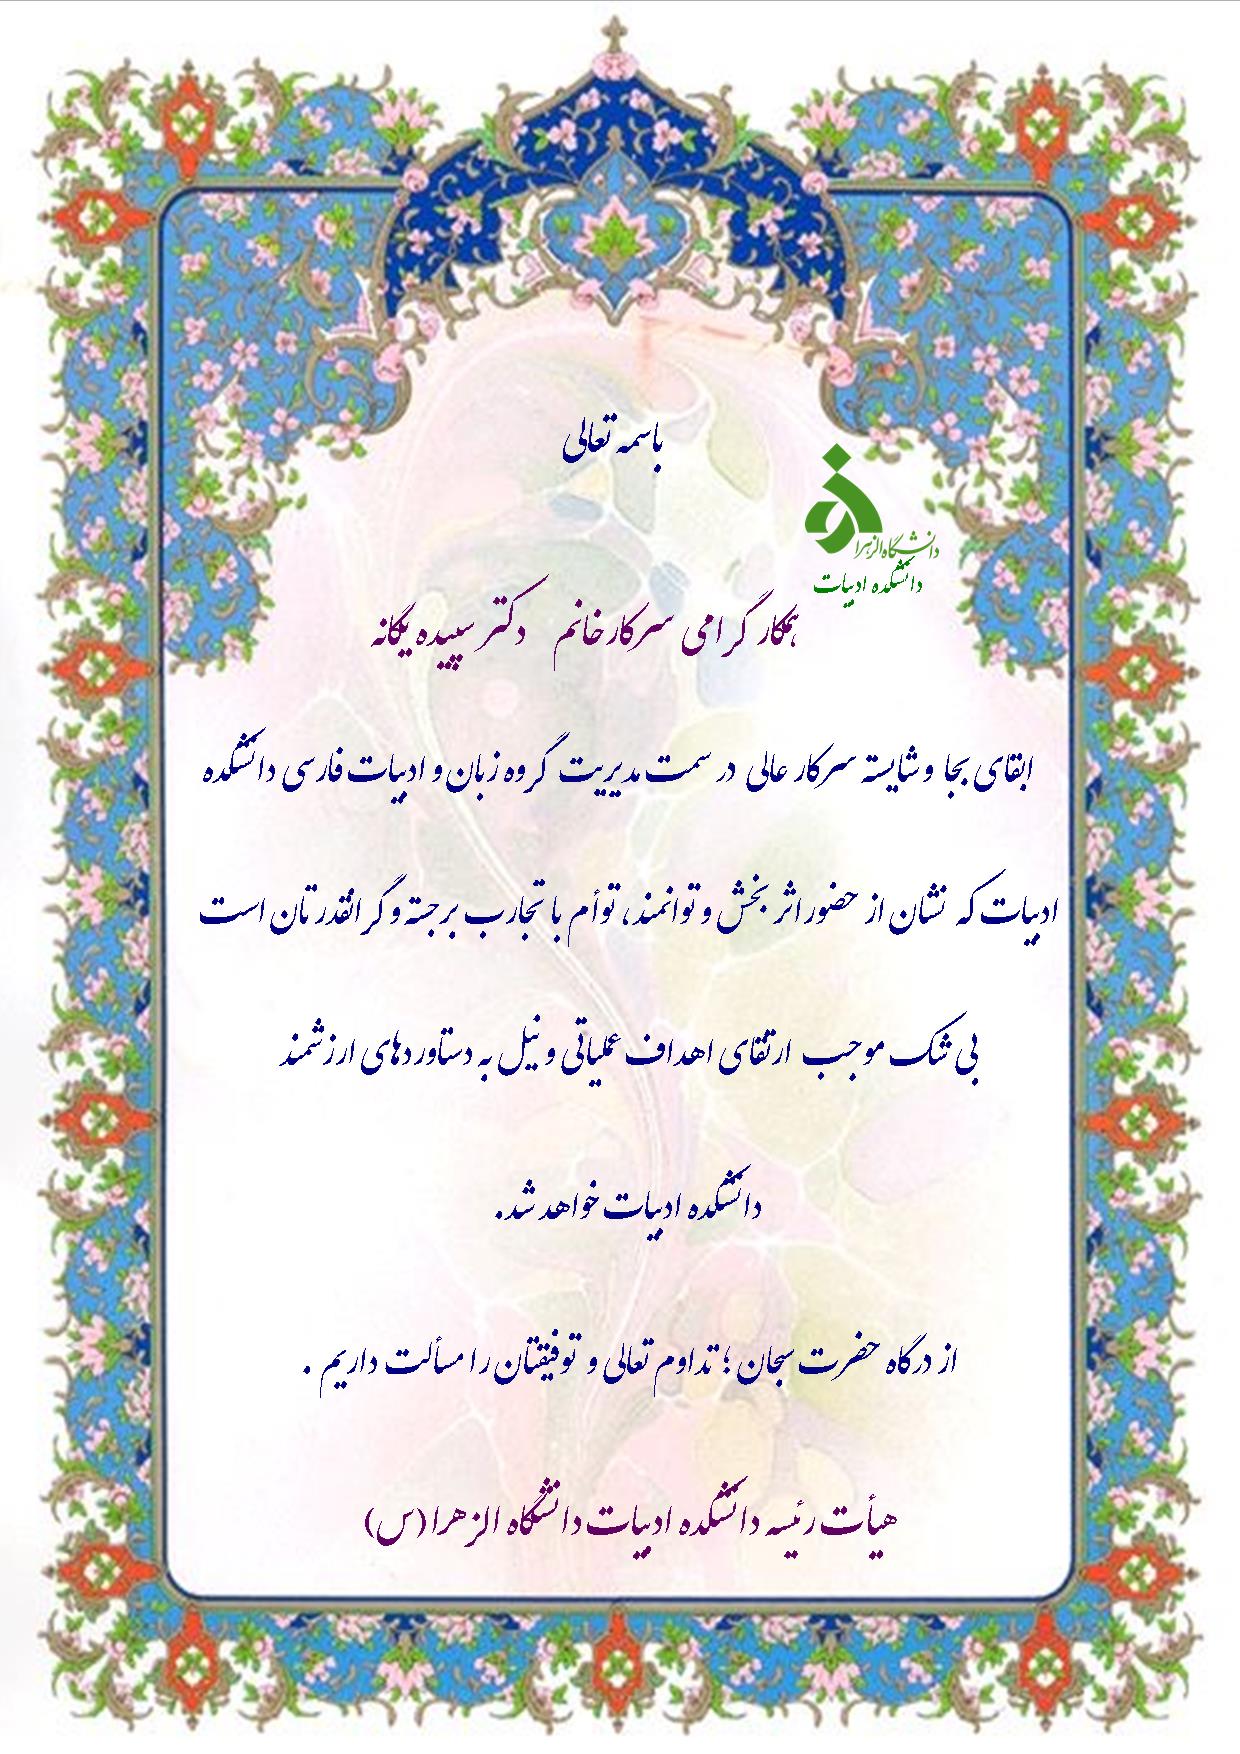 باسمه تعالی
دانشگاه الزهرا
دانشکده ادبیات
همکار گرامی سرکارخانم دکتر سپیده یگانه
ابقای بجا و شایسته سرکار عالی در سمت مدیریت گروه زبان و ادبیات فارسی دانشکده
ادبیات که نشان از حضور اثر بخش و توانمند، توأم با تجارب برجسته و گرانقدرتان است
بی شک موجب ارتقای اهداف عملیاتی و نیل به دستاوردهای ارزشمند
دانشکده ادبیات خواهد شد.
از درگاه حضرت سبحان ؛ تداوم تعالی و توفیقتان را مسألت داریم .
هیأت رئیسه دانشکده ادبیات دانشگاه الزهرا(س)